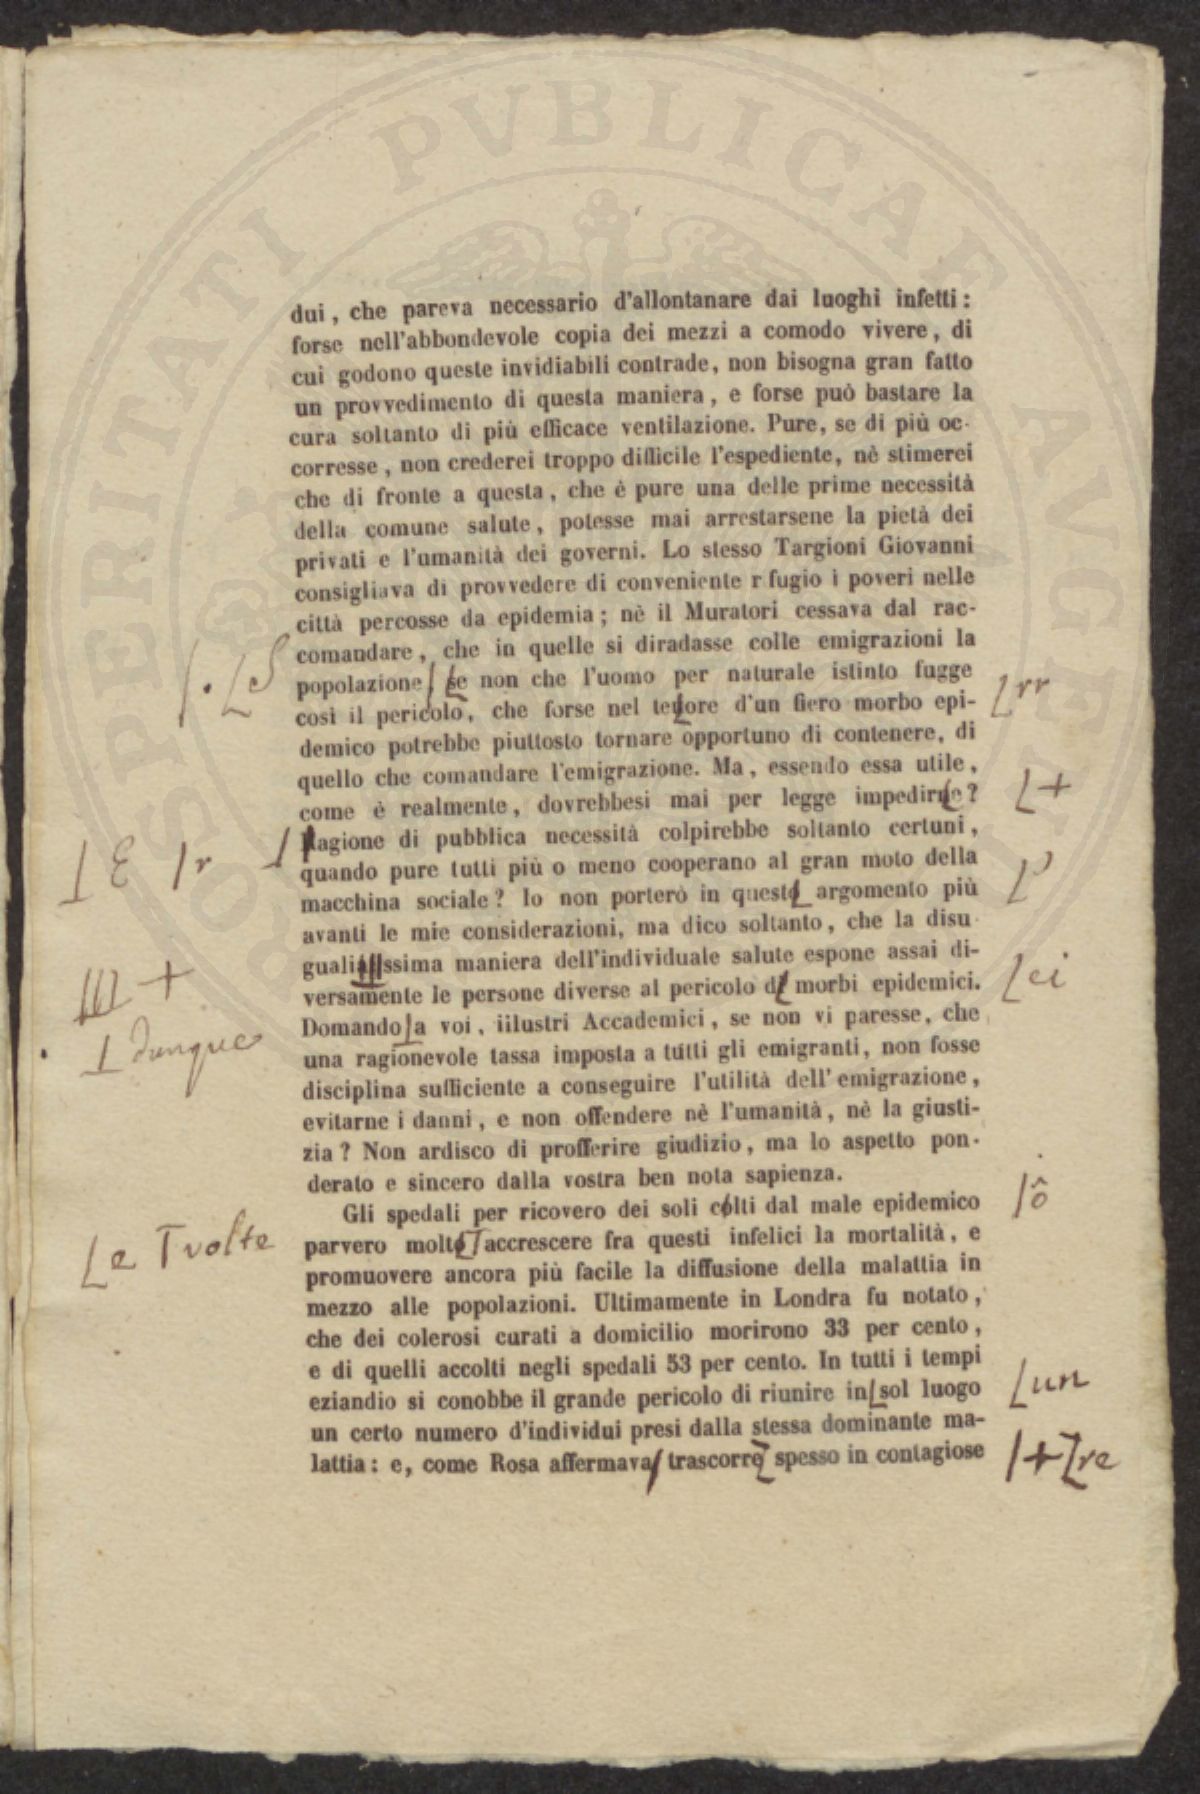 PROSPERITATI PVBLICAE AVGE
dui, che pareva necessario d'allontanare dai luoghi infetti:
forse nell'abbondevole copia dei mezzi a comodo vivere, di
cui godono queste invidiabili contrade, non bisogna gran fatto
un provvedimento di questa maniera, e forse può bastare la
cura soltanto di più efficace ventilazione. Pure, se di più oc-
corresse, non crederei troppo difficile l'espediente, nè stimerei
che di fronte a questa, che è pure una delle prime necessità
della comune salute, potesse mai arrestarsene la pietà dei
privati e l'umanità dei governi. Lo stesso Targioni Giovanni
consigliava di provvedere di conveniente r fugio i poveri nelle
città percosse da epidemia; nè il Muratori cessava dal rac-
comandare, che in quelle si diradasse colle emigrazioni la
. S popolazione, se non che l'uomo per naturale istinto fugge
così il pericolo, che forse nel tenore d'un fiero morbo epi- rr
demico potrebbe piuttosto tornare opportuno di contenere, di
quello che comandare l'emigrazione. Ma, essendo essa utile,
come è realmente, dovrebbesi mai per legge impedirne? +
E r Ragione di pubblica necessità colpirebbe soltanto certuni,
quando pure tutti più o meno cooperano al gran moto della
macchina sociale? Io non porterò in questo argomento più
avanti le mie considerazioni, ma dico soltanto, che la disu-
+ gualissima maniera dell'individuale salute espone assai di-
versamente le persone diverse al pericolo di morbi epidemici. ei
dunque Domando a voi, iilustri Accademici, se non vi paresse, che
una ragionevole tassa imposta a tutti gli emigranti, non fosse
disciplina sufficiente a conseguire l'utilità dell'emigrazione,
evitarne i danni, e non offendere nè l'umanità, nè la giusti-
zia? Non ardisco di profferire giudizio, ma lo aspetto pon-
derato e sincero dalla vostra ben nota sapienza.
Gli spedali per ricovero dei soli colti dal male epidemico ô
e volte parvero molto accrescere fra questi infelici la mortalità, e
promuovere ancora più facile la diffusione della malattia in
mezzo alle popolazioni. Ultimamente in Londra fu notato,
che dei colerosi curati a domicilio morirono 33 per cento,
e di quelli accolti negli spedali 53 per cento. In tutti i tempi
eziandio si conobbe il grande pericolo di riunire in sol luogo un
un certo numero d'individui presi dalla stessa dominante ma-
lattia: e, come Rosa affermava, trascorre spesso in contagiose + re